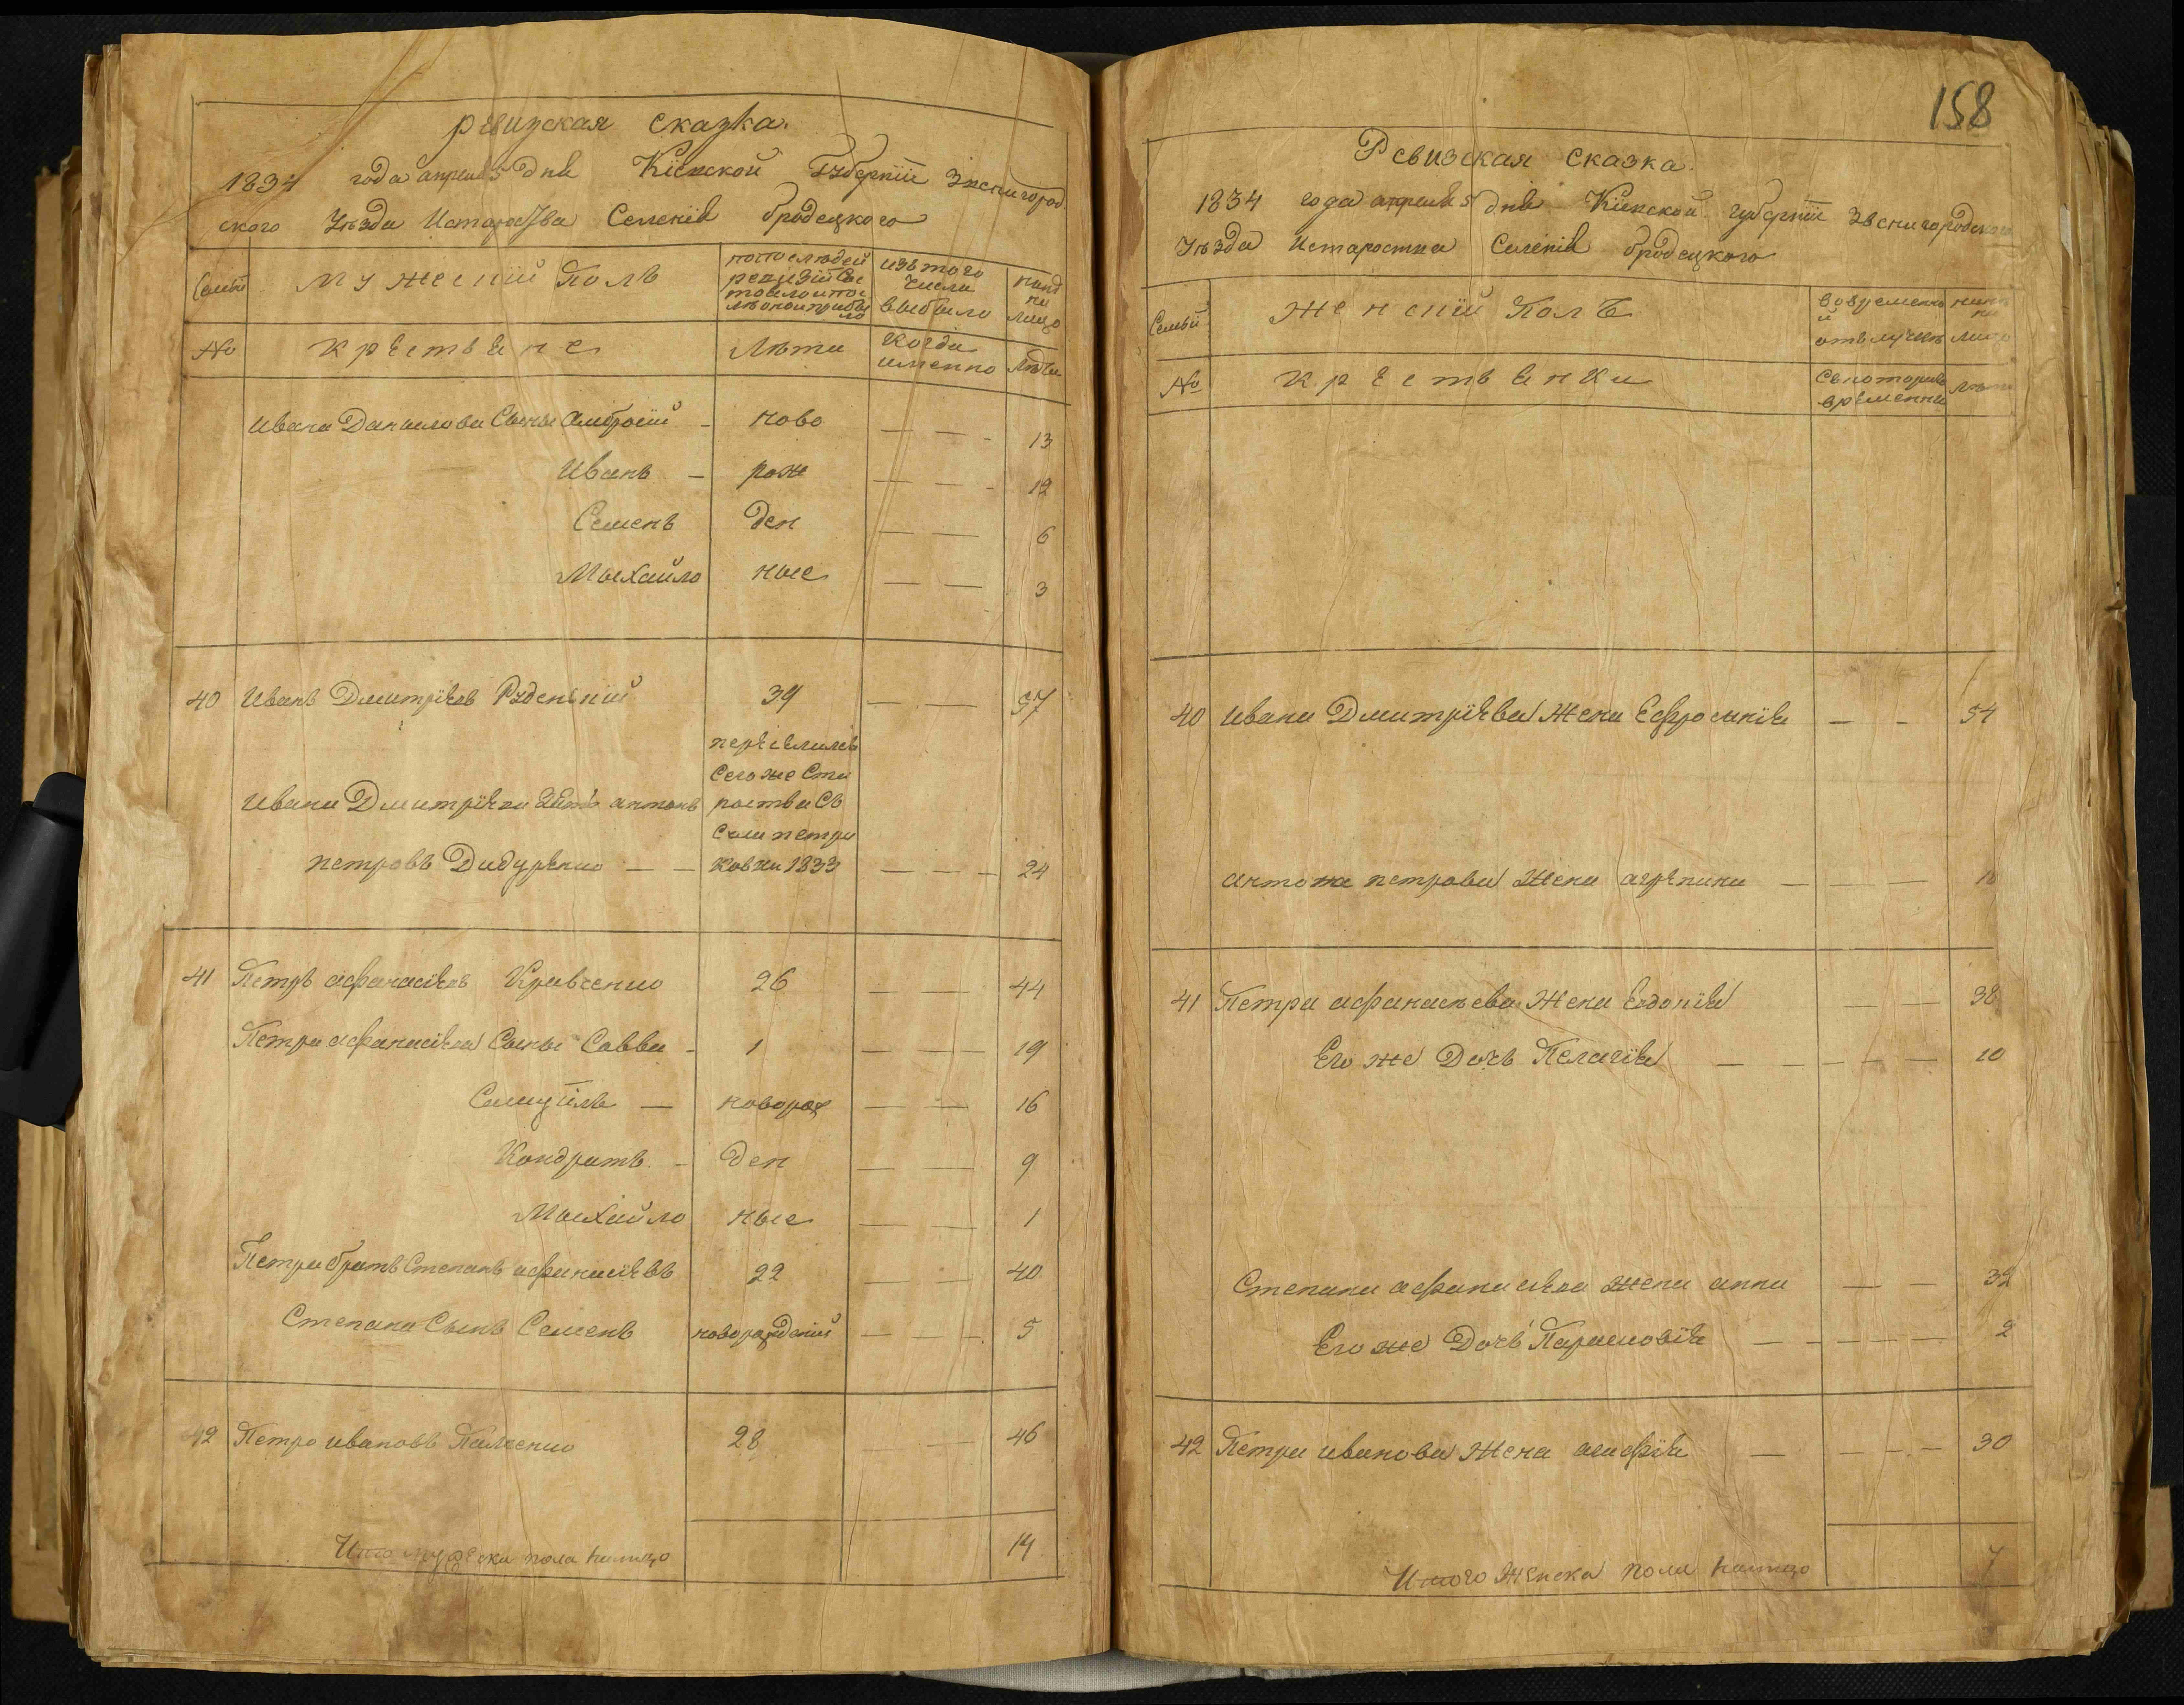 ревизская сказка.
1834 года апреля 5 дня Кіевской Губерніи Звенигород
ского Уѣзда Истароства Селенія бродецкого
Семьи
мужескій Полъ
выбыло
изъ того
числа
лицо
№
крестьяне
Лѣта
Когда
именно
Лѣта
Ивана Данилова Сыны Амбросій - ново — — - 13
Иванъ - рож — — - 12
Семенъ ден — — 6
Мыхайло ные — — 3
40 Иванъ Дмитріевъ Руденькій 39 — — 57
переселилсь
Сего же Ста
Ивана Дмитріева Зять антонъ роства Съ
Села петри
петровъ Дидуренко — — ковки 1833 — — - 24
41 Петръ афанасіевъ Кравченко 26 — — 44
Петра афанасіева Сыны Савва - 1 — — 19
Самуіль — новорож — — 16
Кондратъ - ден — — 9
Мыхайло ные — — 1
Петра братъ Степанъ афанасіевъ 22 — — 40
Степана Сынъ Семенъ новорожденій — — - 5
42 Петро ивановъ 28 — — 46
Итого мужеска пола налицо 14
158
Ревизская сказка.
1834 года апреля 5 дня Кіевской губерніи Звенигородского
Уѣзда Истароства Селенія бродецкого
Семьи
Женскій Полъ
вовременно
й
отълучкѣ
лицо
№
Крестьянки
Съкоторого
времени
Лѣта
40 Ивана Дмитріева Жена Ефросынія — - 54
антона петрова Жена агрепина — — —
41 Петра афанасьева Жена Евдокія — — 38
Его же Дочь Пелагія — — - — — 10
Степана афанасіева жена анна — — 32
Его же Дочь Парасковія — - — — — 2
42 Петра иванова Жена агафія — — - — 30
Итого женска пола налицо 7